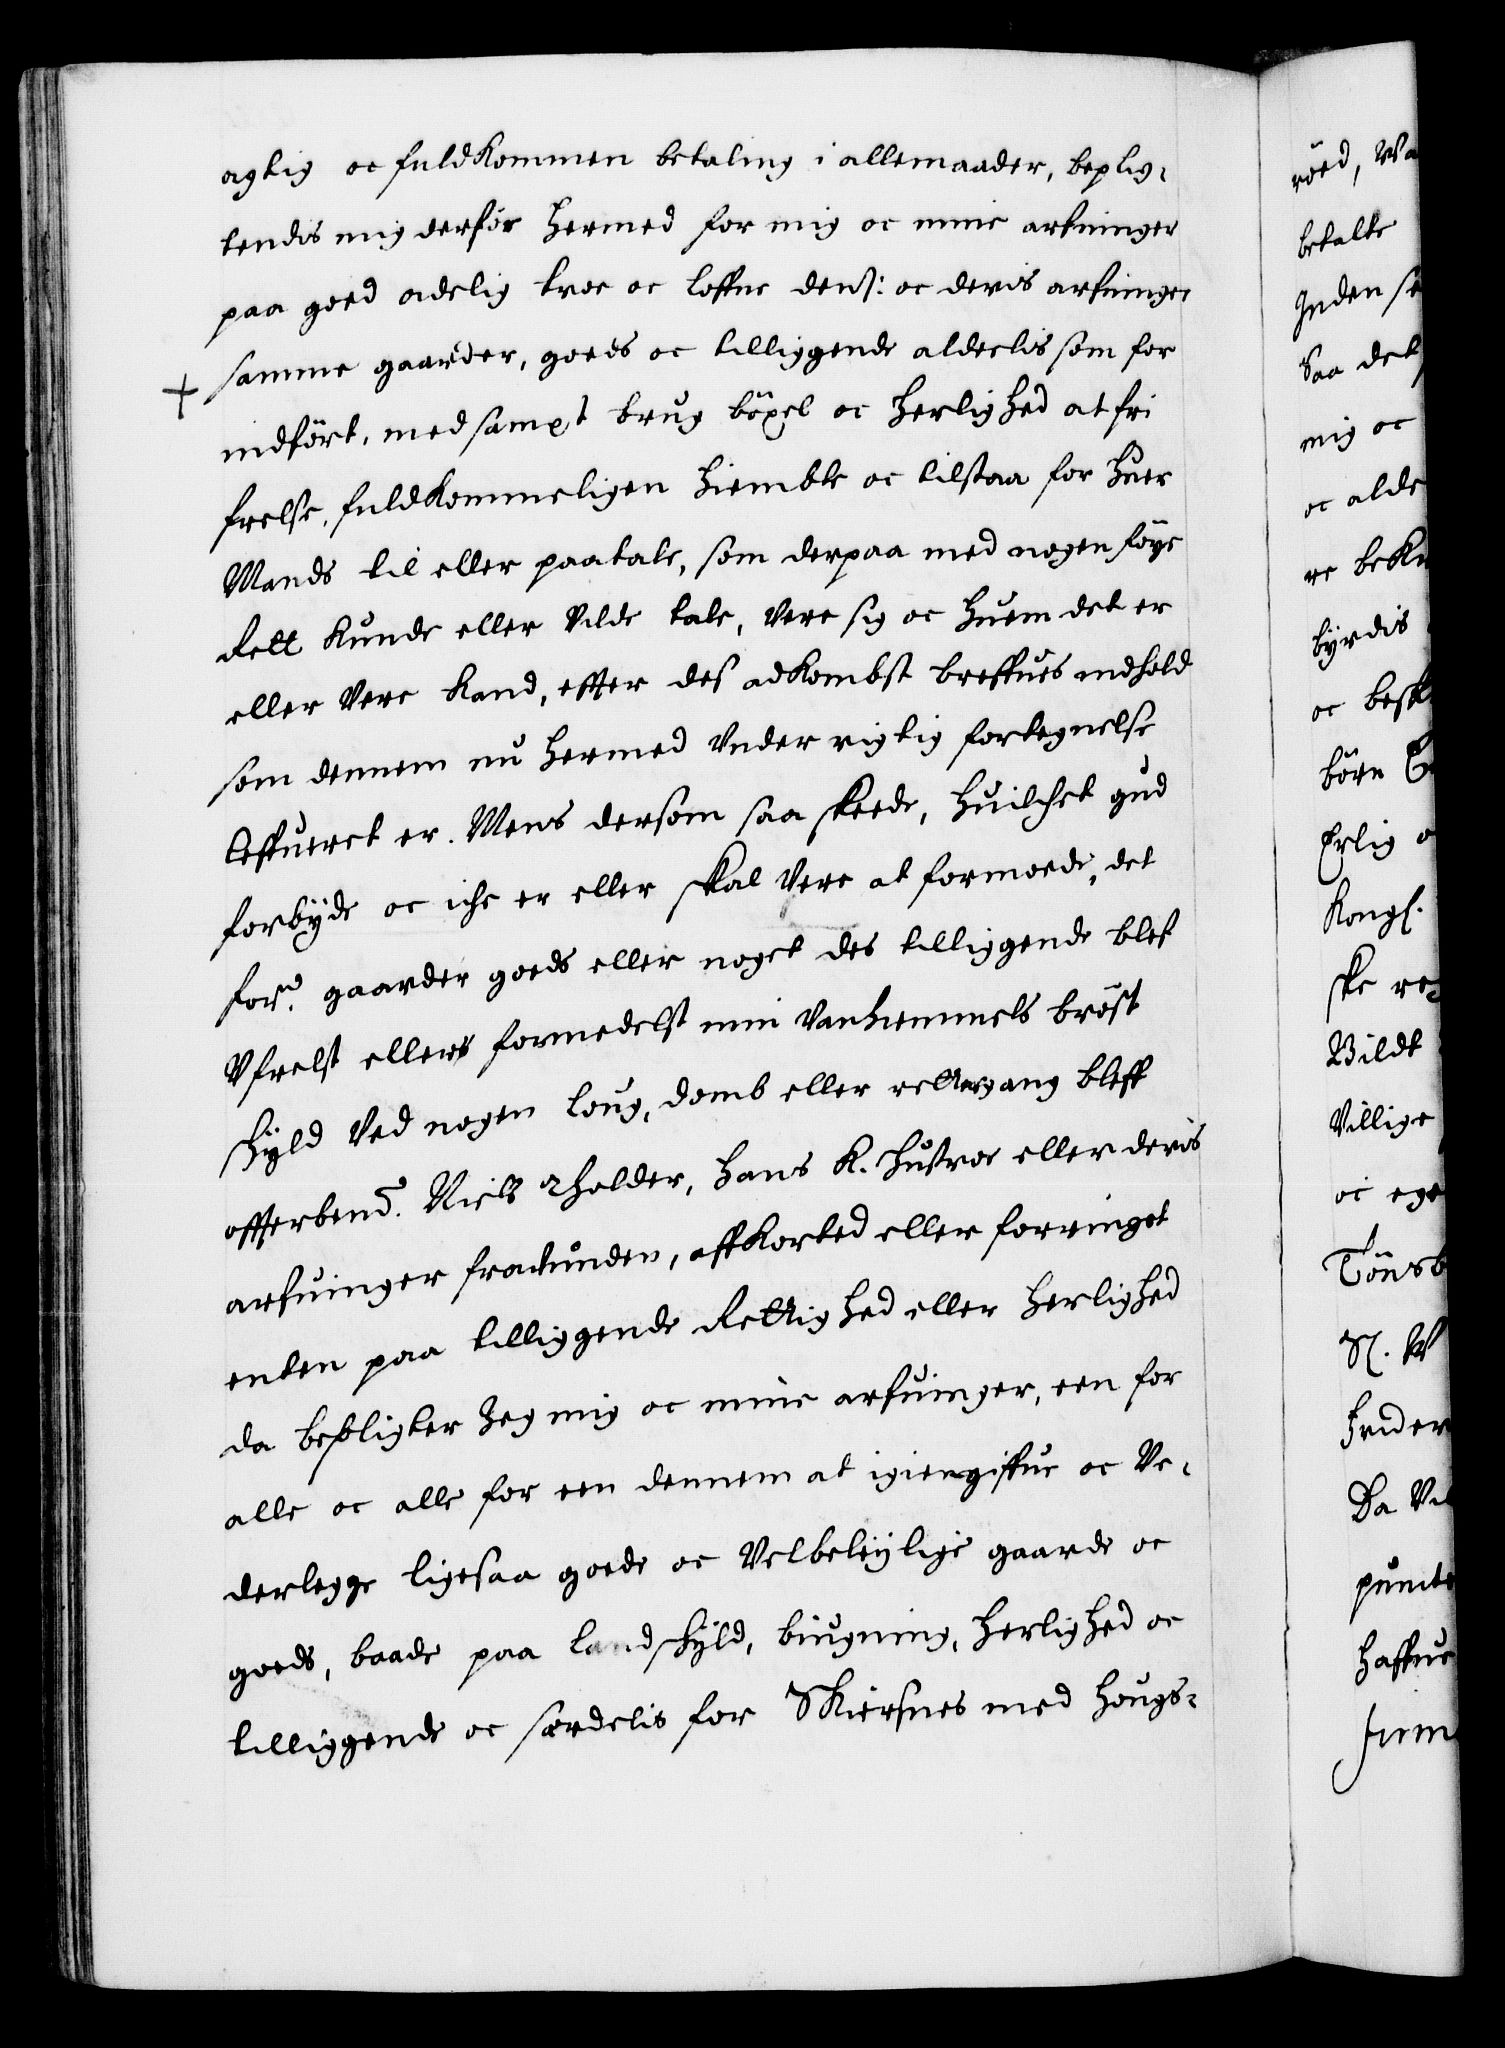 agtig oc fuldkommen betaling i allemaader, beplig-
tendis mig derfór hermed for mig oc mine arfuinger
paa goed adelig troe oc loffue dens: oc deris arfuinger
samme gaarder, goeds oc tilliggende aldeelis som for
indfört, med sampt brug böxel oc herlighed at fri
frelse, fuldkommeligen hiemble oc tilstaa for huer
Mands til eller paatale, som derpaa med nogen föye
Rett kunde eller vilde tale, vere sig oc huem det er
eller vere kand, effter des adkombst breffues indhold
som dennem nu hermed under rigtig fortegnelse
leffueret er. Mens dersom saa skeede, huilchet gud
forbÿde oc iche er eller skal vere at formoede, det
for.ne gaarder goeds eller noget des tilliggende blef
Vfrelst ellers formedelst min vanhiemmels bröst
skÿld ved nogen loug, domb eller rettergang bleff
offterben.te Niels Tholder, hans K. hustroe eller deris
arfuinger frauunden, affkorted eller forringet
enten paa tilliggende Rettighed eller herlighed
da bepligter Jeg mig oc mine arfuinger, een for
alle oc alle for een dennem at igiengiffue oc ve-
derlegge ligesaa goede oc velbeleÿlige gaarde oc
goeds, baade paa landskÿld, biugning, herlighed oc
tilliggende oc særdelis for Skiersnes med hougs-
röed, Wa
betalte
Inden se
Saa det
mig oc
oc alde
re bekr
bÿrdis
oc besk
börn
Erlig o
Kongl.
ske re
Bildt
Villige
oc ege
Tönsb
Sl. W
hrider
Da Vil
puncte
haffue